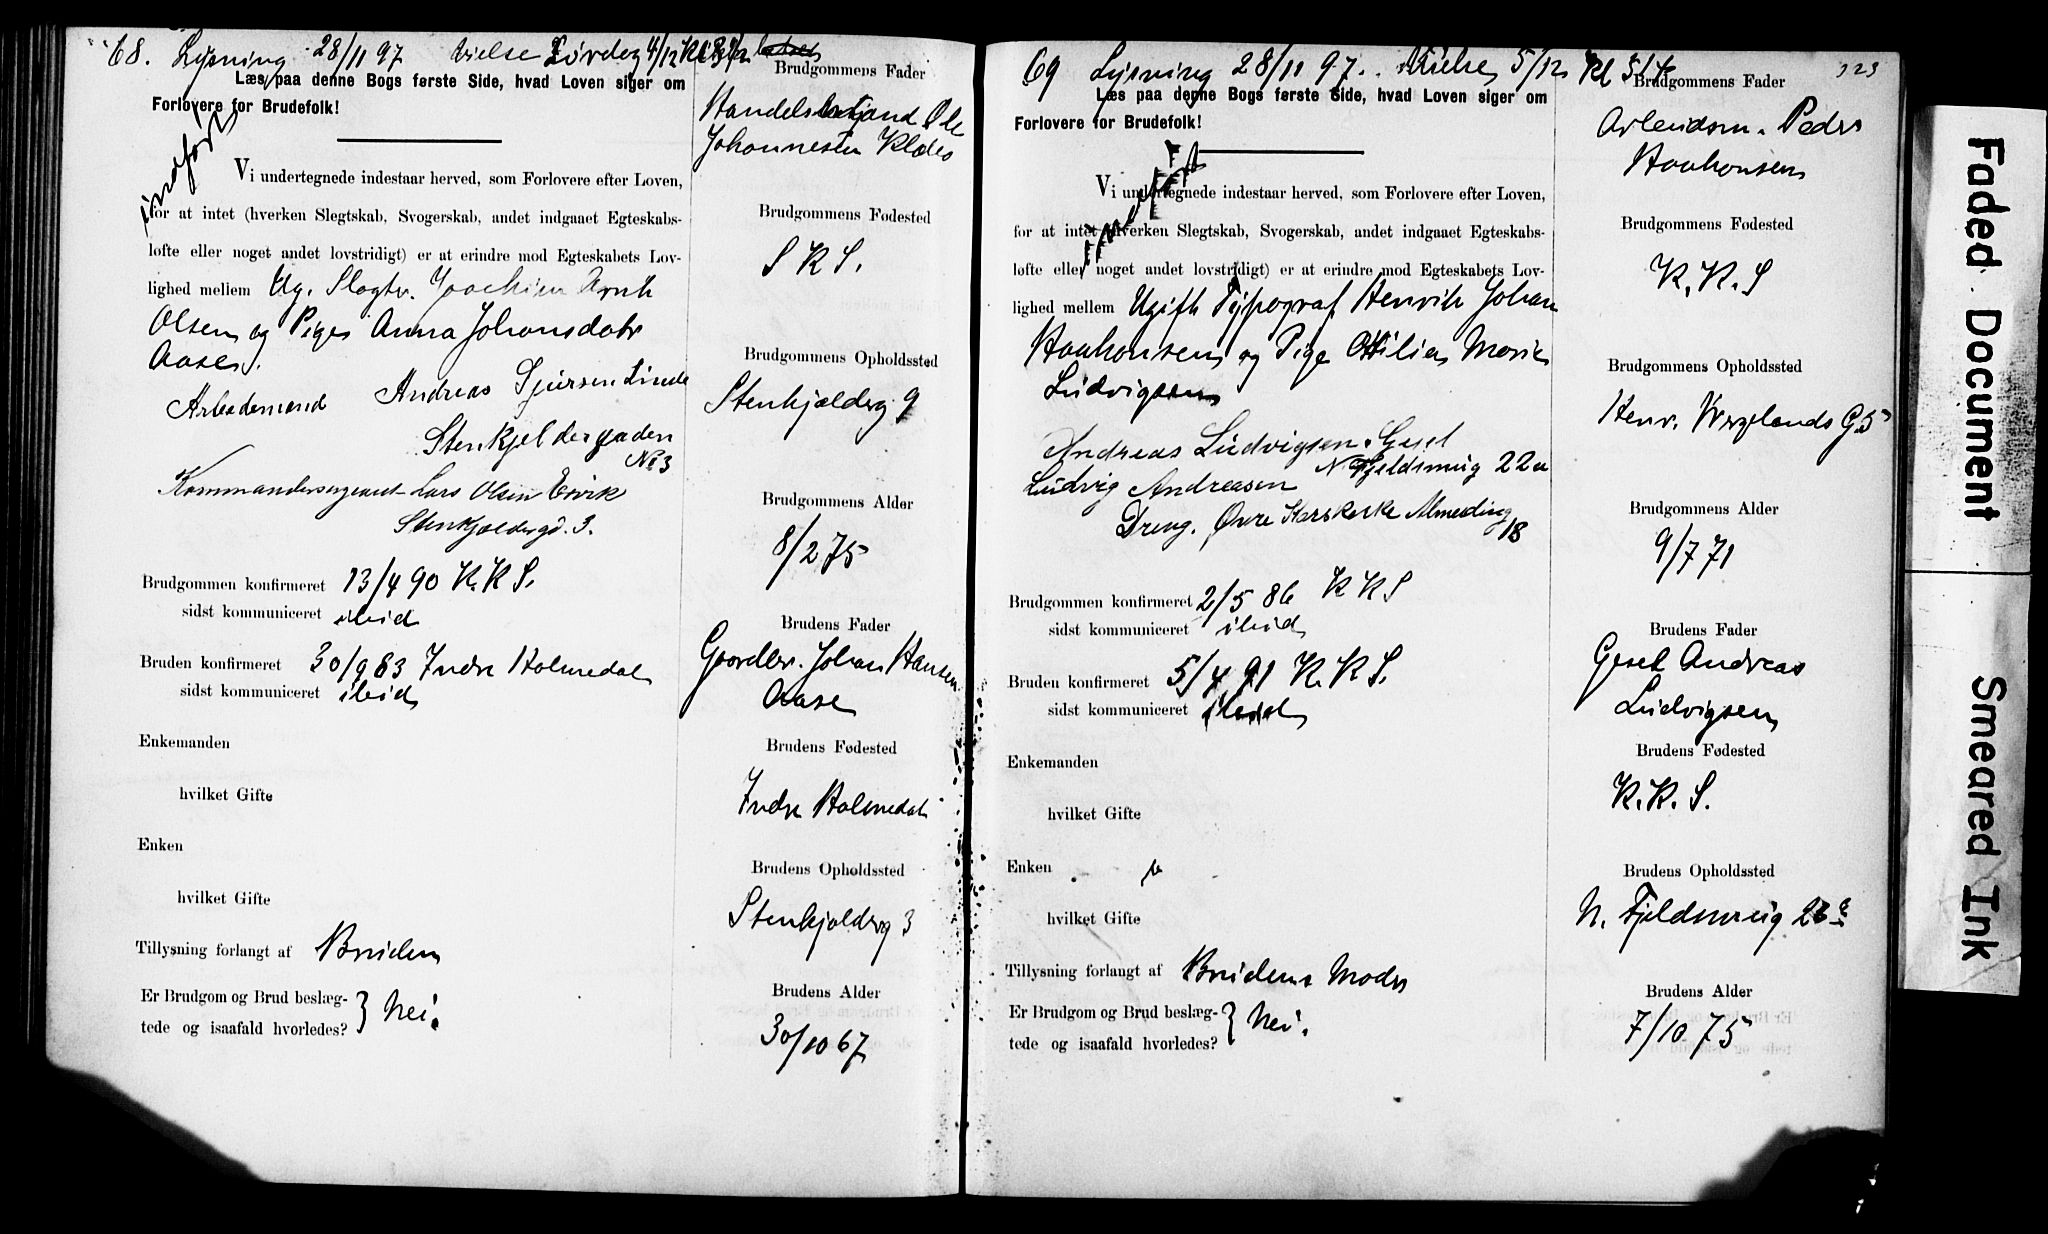 68. Lysning 28/11 97 Vielse Lørdag 4/12 Kl
Læs paa denne Bogs første Side, hvad Loven siger om
Forlovere for Brudefolk!
indført
Vi undertegnede indestaar herved, som Forlovere efter Loven,
for at intet (hverken Slegtskab, Svogerskab, andet indgaaet Egteskabs-
løfte eller noget andet lovstridigt) er at erindre mod Egteskabets Lov-
lighed mellem Ug. Slagter Joachim
Olsen og Pige Anna Johansdatr
Aase.
Arbeidsmand Andreas Sjursen Linde
Stenkjeldergaden
No 3
Kommandersergeant Lars Olsen Ervik
Stenkjeldergd. 3.
Brudgommen konfirmeret 13/4 90 K. K S.
sidst kommuniceret ibid
Bruden konfirmeret 30/9 83 Indre Holmedal
sidst kommuniceret ibid
Enkemanden
hvilket Gifte
Enken
hvilket Gifte
Tillysning forlangt af Bruden
Er Brudgom og Brud beslæg-
tede og isaafald hvorledes? } Nei.
Brudgommens Fader
Handelsbetjand Ole
Johannesen
Brudgommens Fødested
S K S.
Brudgommens Opholdssted
Stenkjelderg 9
Brudgommens Alder
8/2 75
Brudens Fader
Gaardbr. Johan Hansen
Aase
Brudens Fødested
Indre Holmedal
Brudens Opholdssted
Stenkjelderg 3
Brudens Alder
30/10 67
69 Lysning 28/11 97. Vielse 5/12 Kl 5 1/4
323
Læs paa denne Bogs første Side, hvad Loven siger om
Forlovere for Brudefolk!
indført
Vi undertegnede indestaar herved, som Forlovere efter Loven,
for at intet (hverken Slegtskab, Svogerskab, andet indgaaet Egteskabs-
løfte eller noget andet lovstridigt) er at erindre mod Egteskabets Lov-
lighed mellem Ugift Typograf Henrik Johan
Haakonsen og Pige Ottilia Marie
Ludvigsen
Andreas Ludvigsen. Gesel
N Fjeldsmug 22a
Ludvig Andreasen
Dreng. Øvre Korskirke Almending
18
Brudgommen konfirmeret 2/5 86 K K S
sidst kommuniceret ibid
Bruden konfirmeret 5/4 91 K. K S.
sidst kommuniceret ibid
Enkemanden
hvilket Gifte
Enken
hvilket Gifte
Tillysning forlangt af Brudens Moder
Er Brudgom og Brud beslæg-
tede og isaafald hvorledes? } Nei.
Brudgommens Fader
Arbeidsm. Peder
Haakonsen
Brudgommens Fødested
K. K. S
Brudgommens Opholdssted
Henr. Wergelands G. 5
Brudgommens Alder
9/7 71
Brudens Fader
Gesel Andreas
Ludvigsen
Brudens Fødested
K. K. S.
Brudens Opholdssted
N. Fjeldsmug
Brudens Alder
7/10 75
Faded Document
Smeared Ink